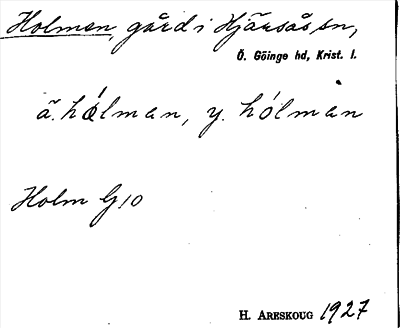 Holmen, gård i Hjärsås sn,
Ö. Göinge hd, Krist. l.
ä. hólman, y. hólman
Holm G10
H. Areskoug 1927